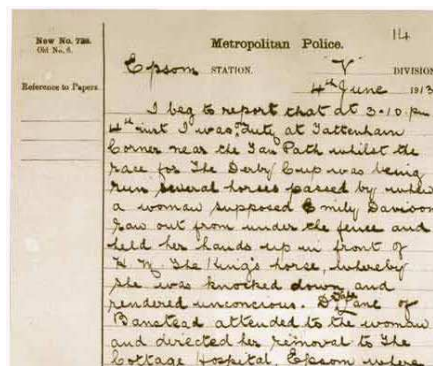 114
Now No. 728.
Old No. 6.
Metropolitan Police.
Epsom STATION. "V" DIVISION
Reference to Papers.
4th June 1913
I beg to report that at 3-10 pm
4th inst I was on duty at Tattenham
Corner near the Tan Path whilst the
race for The Derby Cup was being
run, several horses passed by when
a woman supposed Emily Davison
ran out from under the fence and
held her hands up in front of
H.M. The King's horse, whereby
she was knocked down and
rendered unconcious. Dr Lane of
Banstead attended to the woman
and directed her removal to The
Cottage Hospital, Epsom where